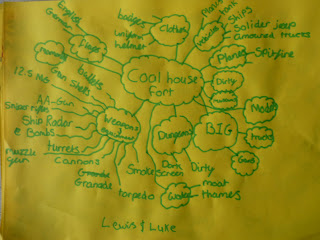 badges
Clothes
uniform
helmet
English
German
Flags
planes
tank
Ships
vehicles
Solider jeep
amoured trucks
Planes
Spitfire
Coal house
fort
Dirty
memory
bullets
Gun Shells
12.5 
AA-Gun
Weapons
Sniper rifles
Ship Radar
e Bombs
turrets
muzzle
gun
Cannons
Granade
Granade
torpedo
Smoke Screen
Dungeons
Dark
Dirty
BIG
Models
trucks
Guns
Water
moat
thames
Lewis & Luke